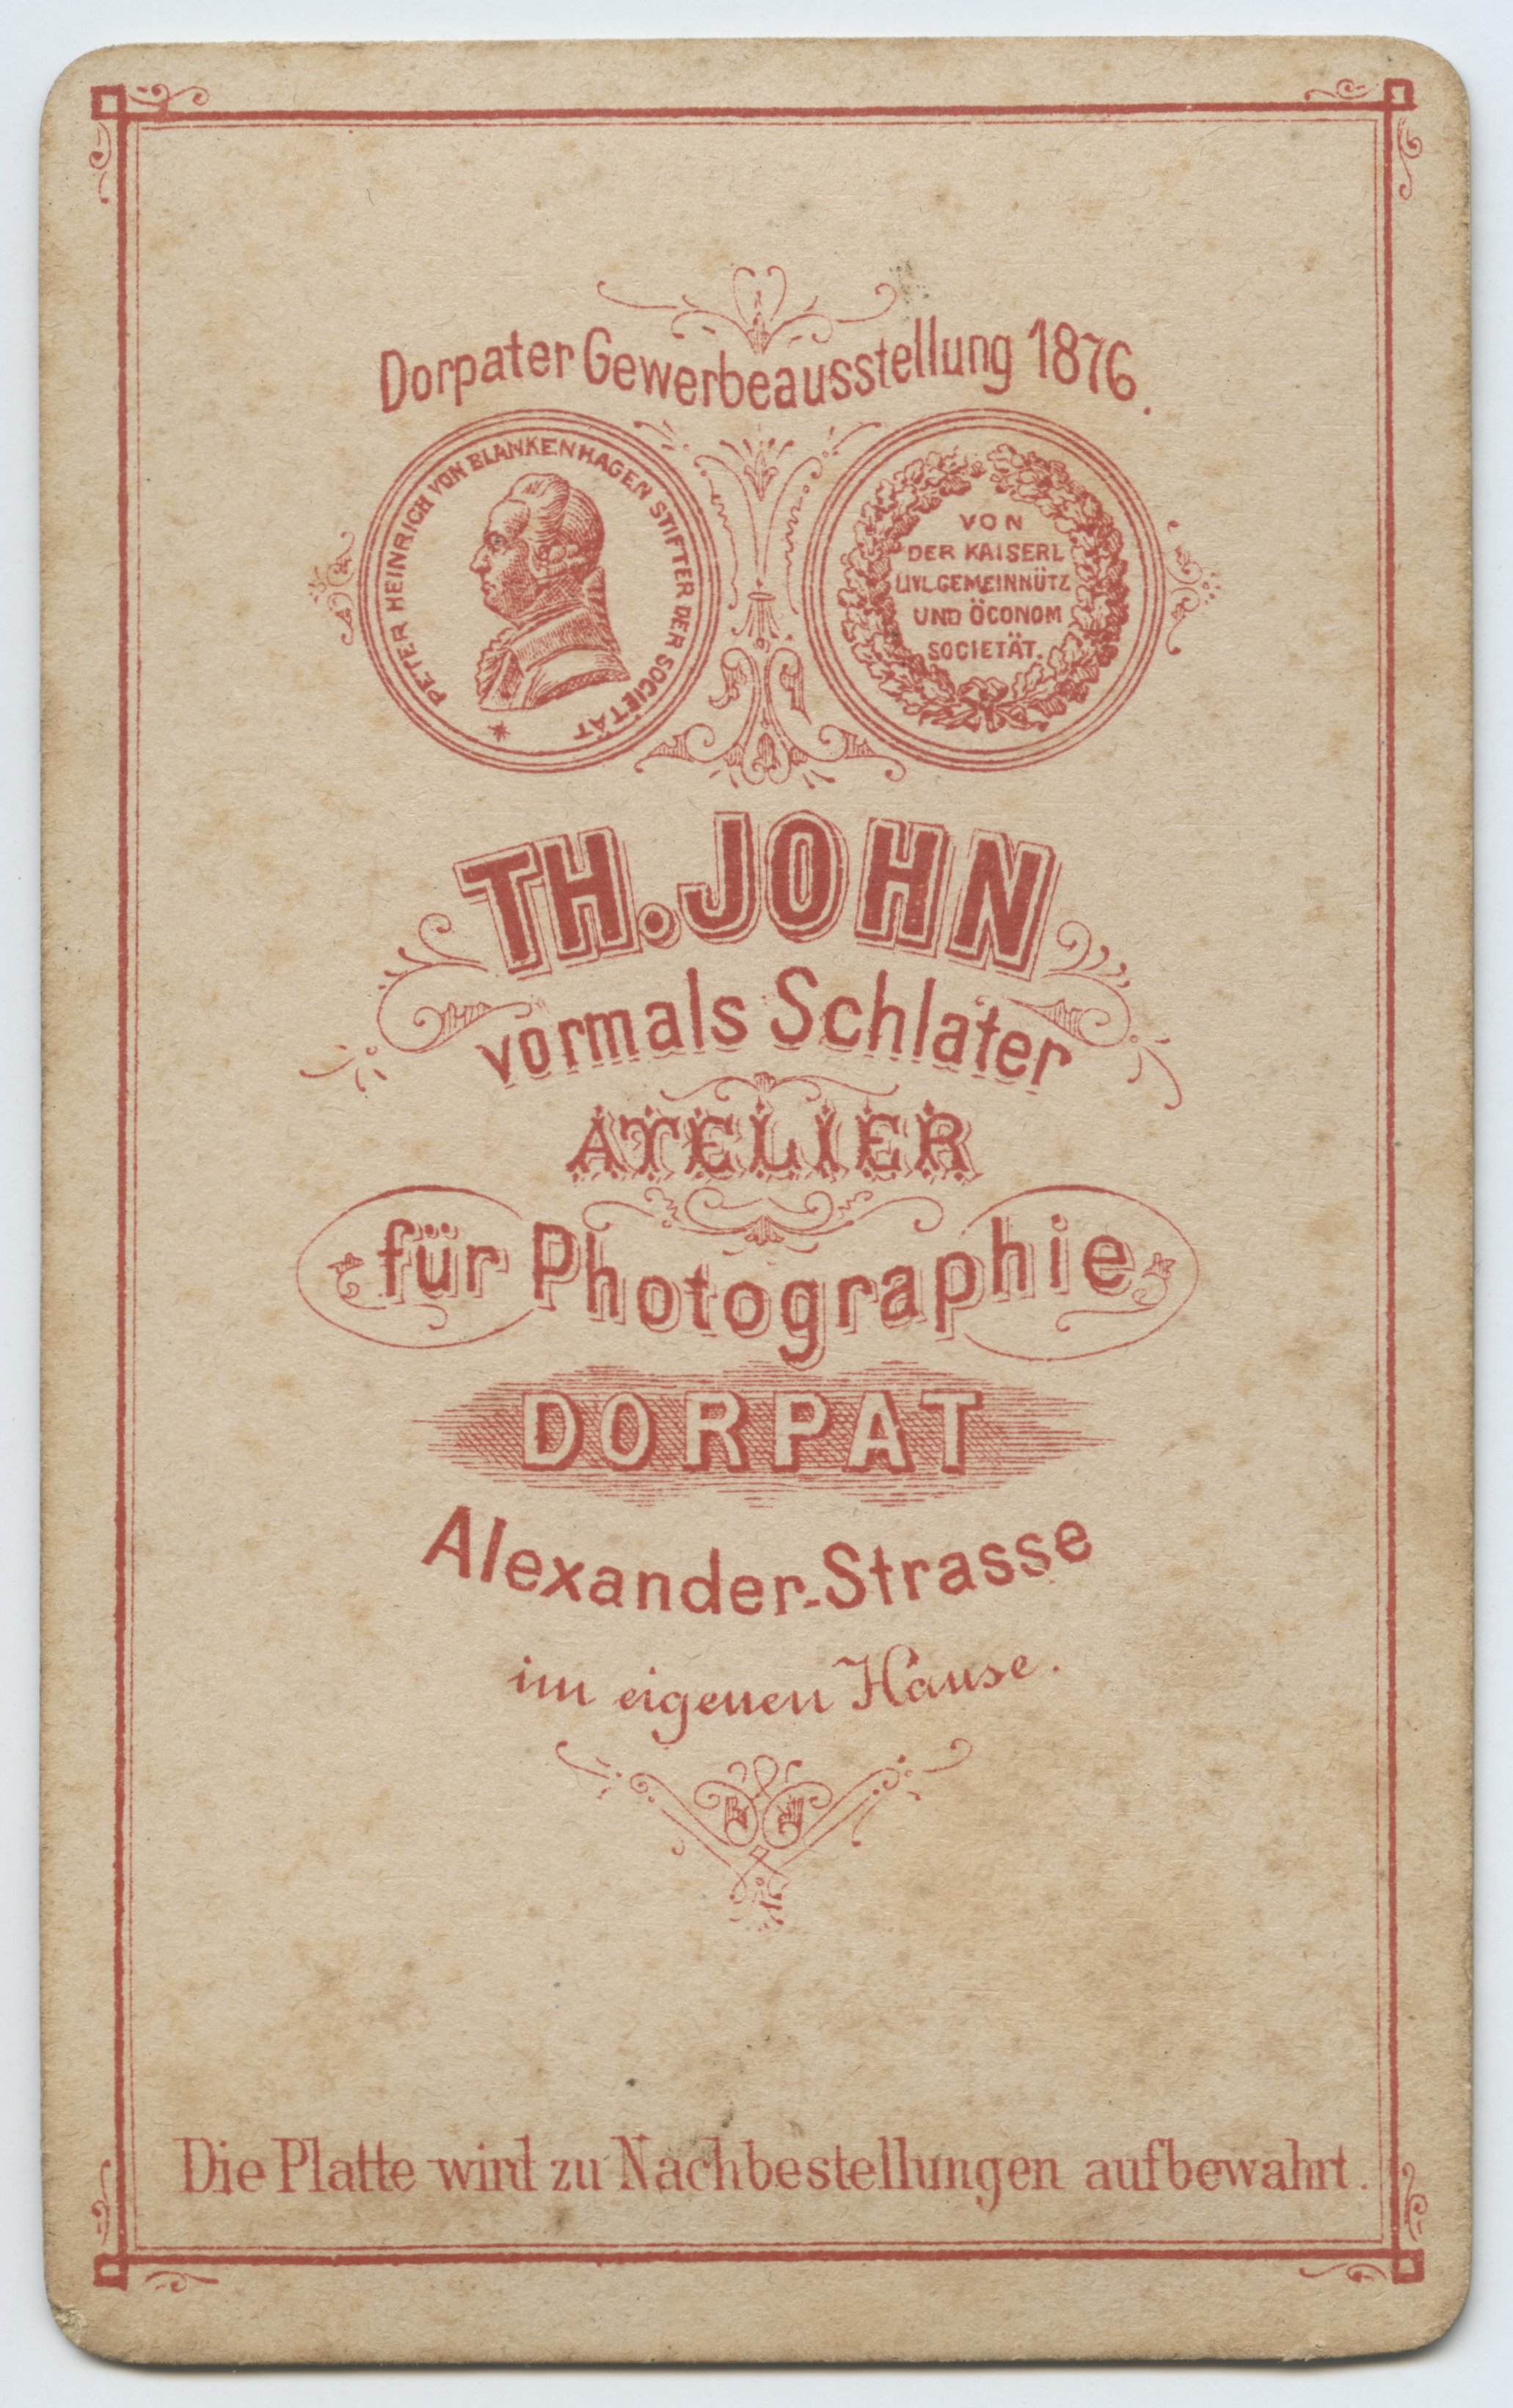 Dorpater Gewerbeausstellung 1876.
PETER HEINRICH VON BLANKENHAGEN STIFTER DER SOCIETÄT
VON
DER KAISERL
LIVL GEMEINNÜTZ
UND ÖCONOM
SOCIETÄT.
TH. JOHN
vormals Schlater
ATELIER
für Photographie
DORPAT
Alexander-Strasse
im eigenen Hause.
Die Platte wird zu Nachbestellungen aufbewahrt.